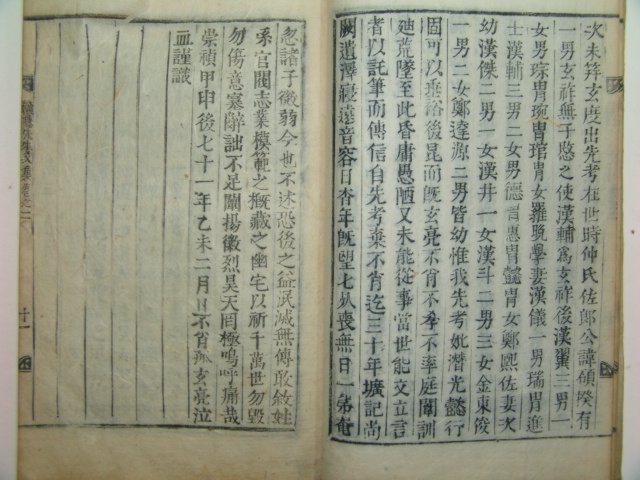 次未筓玄度出先考在世時仲氏佐郎公諱碩揆有
一男玄祚無子愍之使漢輔爲玄祚後漢翼三男一
女男琮冑琬冑琯冑女羅晩擧妻漢儀一男瑞冑進
士漢輔三男二女男德言惠冑懿冑女鄭熙佐妻次
幼漢傑二男一女漢井一女漢斗二男三女金東俊
一男二女鄭逵源二男皆幼惟我先考妣潛光懿行
固可以垂裕後昆而旣玄亮不肖不季不率庭闈訓
廸荒墜至此昏庸愚陋又未能從事當世能文立言
者以託筆而傳信自先考棄不肖迄三十年壙記尚
闕遺擇寢遠音容日杳年旣望七朞喪無日一弟奄
忽諸子微弱今也不述恐後之益泯滅無傳敢敘姓
系官閥志業模範之槪藏之幽宅以祈千萬世勿毁
勿傷意塞辭詘不足闡揚徽烈昊天罔極嗚呼痛哉
崇禎甲申後七十一年乙未二月日不肖孤玄亮泣
血謹識
卷之二
十一